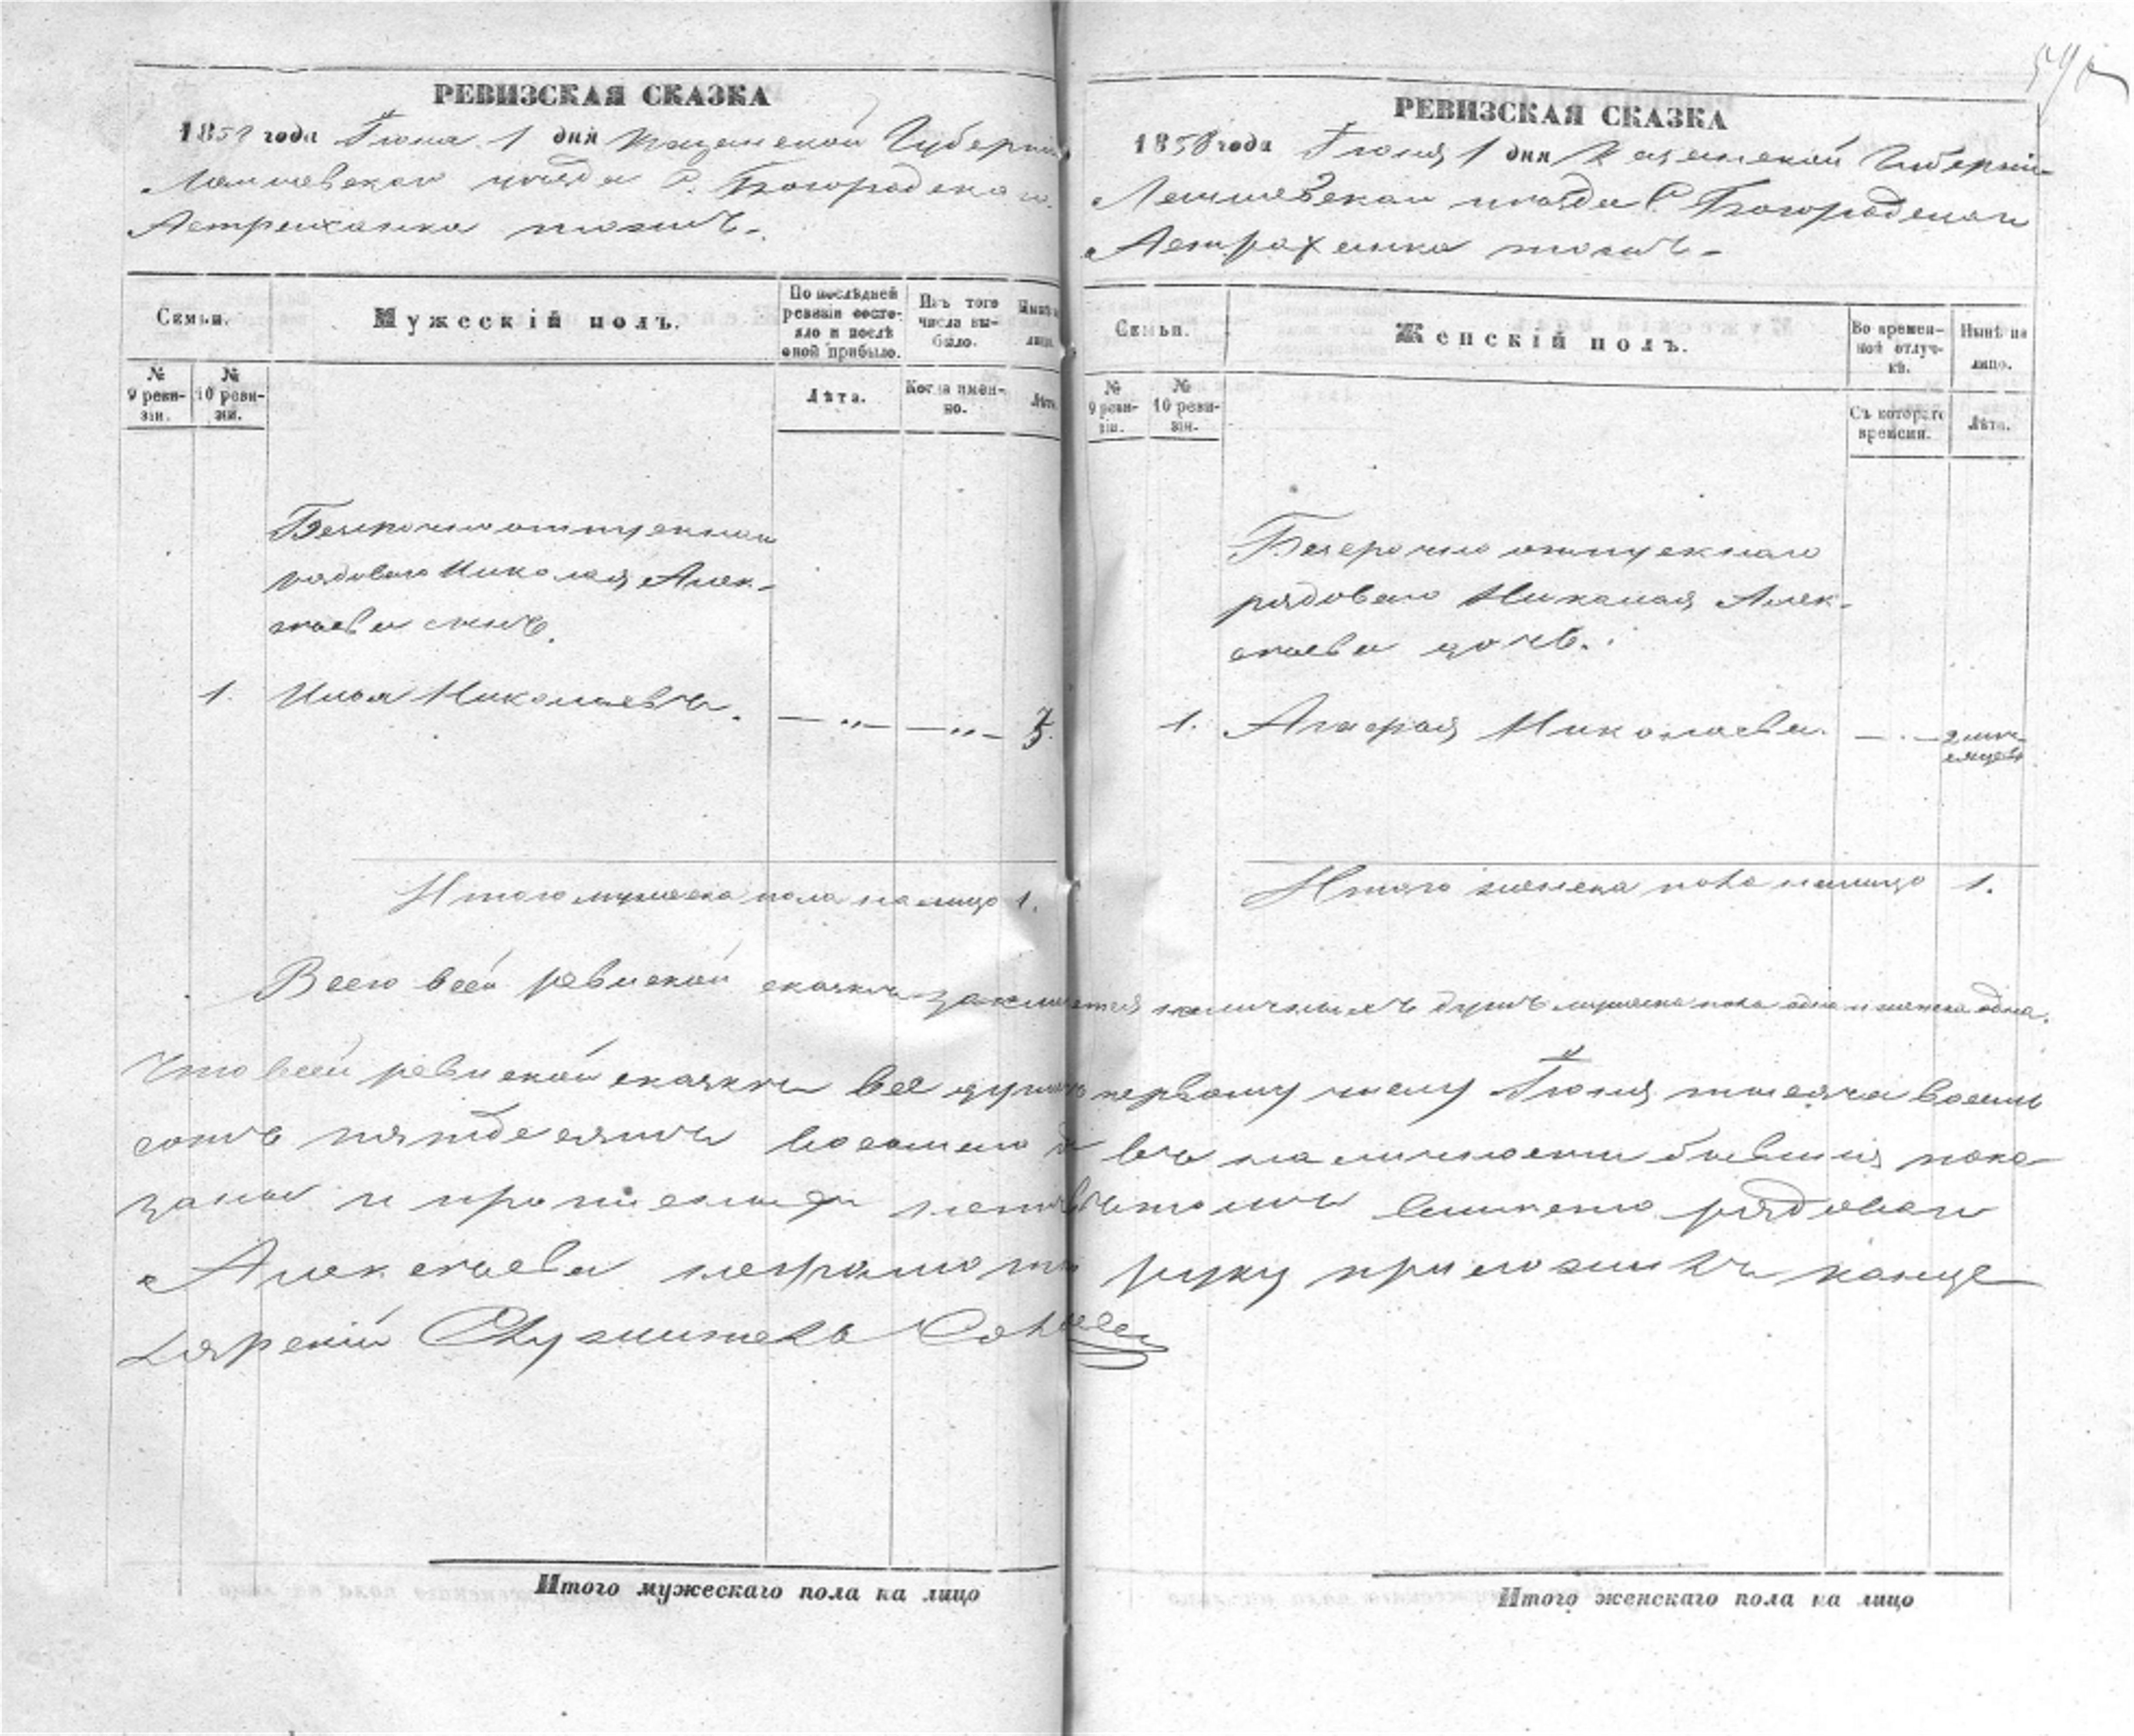 РЕВИЗСКАЯ СКАЗКА
1858 года Іюня 1 дня Казанской Губерніи
Лаишевскаго уѣзда С. Богородскаго
Астраханка тожъ.
Семьи.
Мужескій полъ.
По послѣдней ревизіи состояло и послѣ оной прибыло.
Изъ того числа выбыло.
Нынѣ на лицо.
№ 9 ревизіи.
№ 10 ревизіи.
Лѣта.
Когда именно.
Лѣта.
Безсрочно отпускнаго
рядоваго Николая Алек-
сѣева сынъ.
1. Илья Николаевъ. — „ — — „ —
Итого мужеска пола на лицо 1.
РЕВИЗСКАЯ СКАЗКА
1858 года Іюня 1 дня Казанской Губерніи
Лаишевскаго уѣзда С. Богородскаго
Астраханка тожъ.
Семьи.
Женскій полъ.
Во временной отлучкѣ.
Нынѣ на лицо.
№ 9 ревизіи.
№ 10 ревизіи.
Съ котораго времени.
Лѣта.
Безсрочно отпускнаго
рядоваго Николая Алек-
сѣева дочь.
1. Николаева. 2 мѣ-
сяцевъ
Итого женска пола налицо 1.
Всего въ сей ревиской сказкѣ наличныхъ душъ мужеска пола одна и женска одна.
Что в сей ревиской сказкѣ все души къ первому числу Іюня тысяча восемь
сотъ пятьдесятъ восьмаго въ наличности бывшія пока-
заны и прописныхъ нѣтъ, въ томъ вмѣсто рядоваго
Алексѣева неграмотн руку приложилъ канце
лярскій Служитель
Итого мужескаго пола на лицо
Итого женскаго пола на лицо